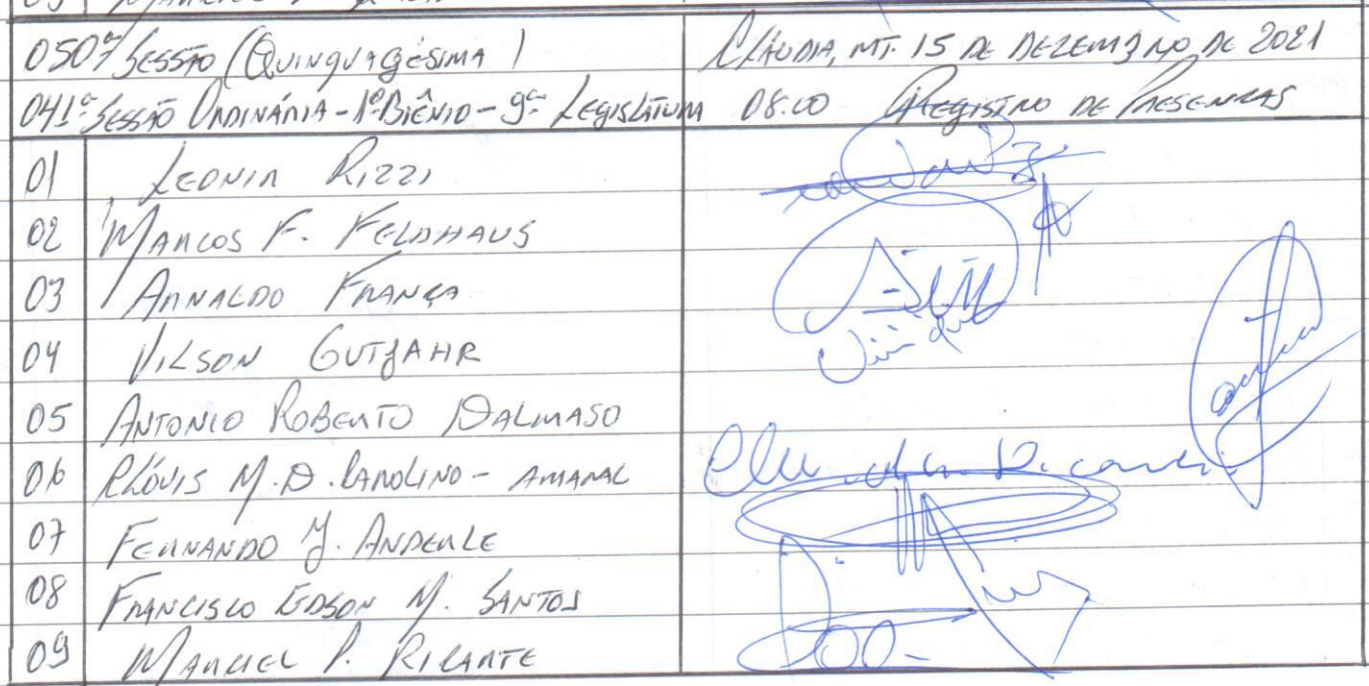 050ª Sessão (Quinquagésima)
Cláudia, MT. 15 de Dezembro de 2021
041ª Sessão Ordinária - 1º Biênio - 9ª Legislatura
08:00 Registro de Presenças
01 Leonir Rizzi
02 Marcos F. Feldhaus
03 Arnaldo França
04 Vilson Gutjahr
05 Antonio Roberto Dalmaso
06 Clóvis M. D. Carolino - Amaral
07 Fernando J. Anderle
08 Francisco Edson M. Santos
09 P.